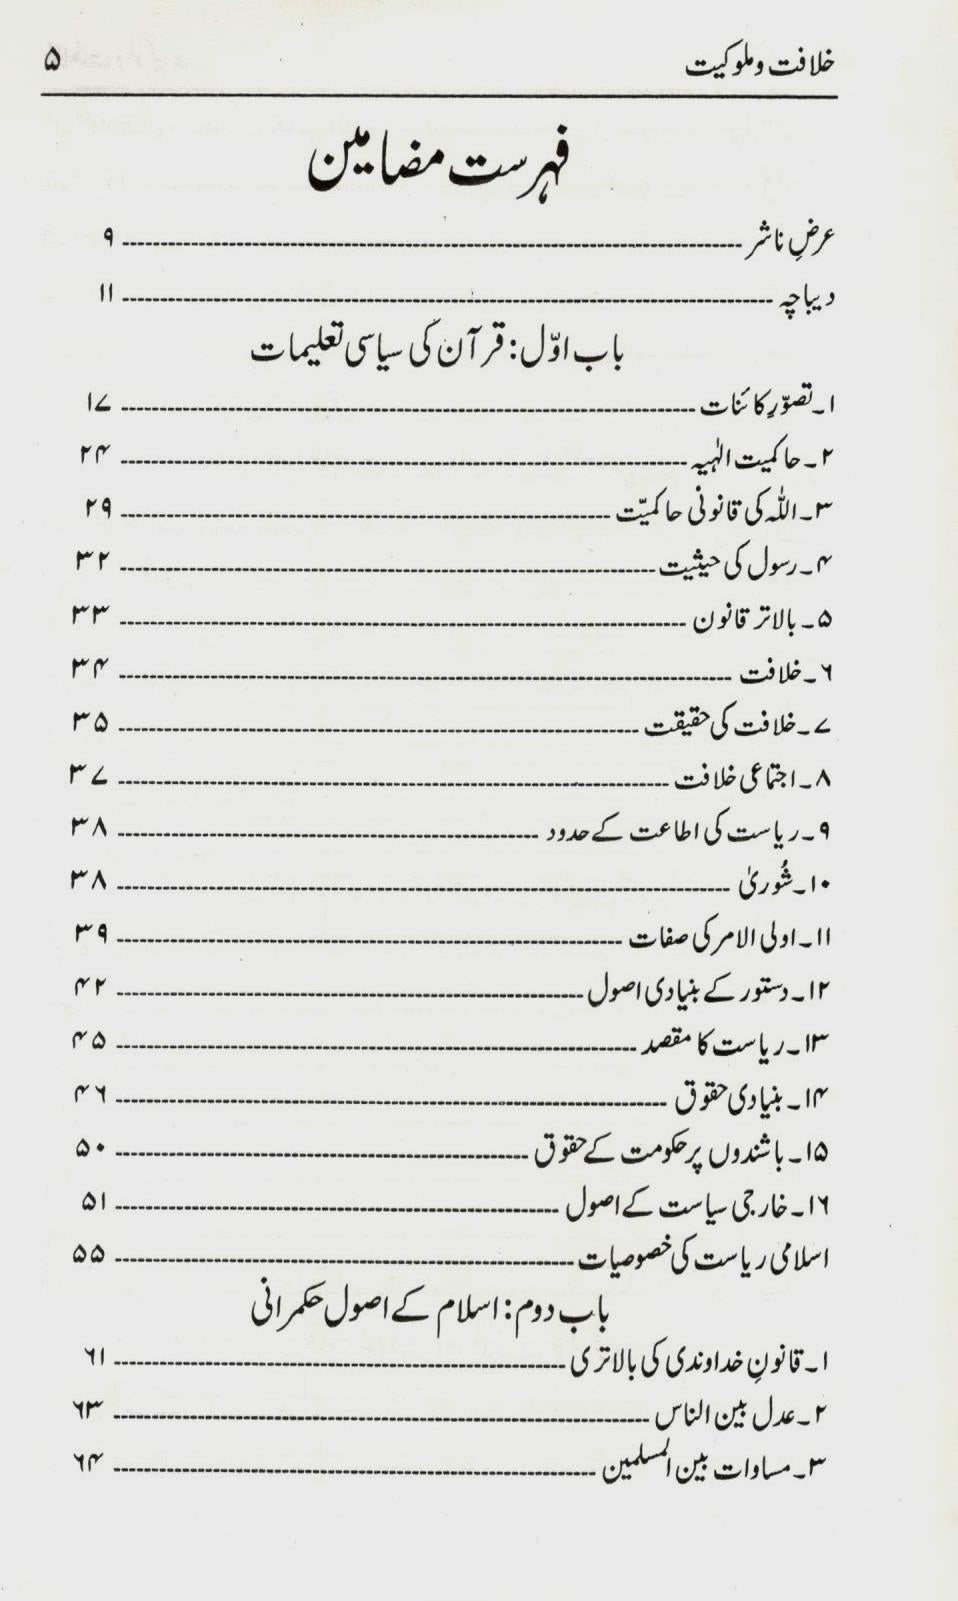 خلافت و ملوکیت ۵
فہرست مضامین
عرضِ ناشر ۹
دیباچہ ۱۱
باب اوّل: قرآن کی سیاسی تعلیمات
۱۔ تصوّرِ کائنات ۱۷
۲۔ حاکمیت الٰہیہ ۲۴
۳۔ اللہ کی قانونی حاکمیّت ۲۹
۴۔ رسول کی حیثیت ۳۲
۵۔ بالاتر قانون ۳۳
۶۔ خلافت ۳۴
۷۔ خلافت کی حقیقت ۳۵
۸۔ اجتماعی خلافت ۳۷
۹۔ ریاست کی اطاعت کے حدود ۳۸
۱۰۔ شُوریٰ ۳۸
۱۱۔ اولی الامر کی صفات ۳۹
۱۲۔ دستور کے بنیادی اصول ۴۲
۱۳۔ ریاست کا مقصد ۴۵
۱۴۔ بنیادی حقوق ۴۶
۱۵۔ باشندوں پر حکومت کے حقوق ۵۰
۱۶۔ خارجی سیاست کے اصول ۵۱
اسلامی ریاست کی خصوصیات ۵۵
باب دوم: اسلام کے اصول حکمرانی
۱۔ قانونِ خداوندی کی بالاتری ۶۱
۲۔ عدل بین الناس ۶۳
۳۔ مساوات بین المسلمین ۶۴